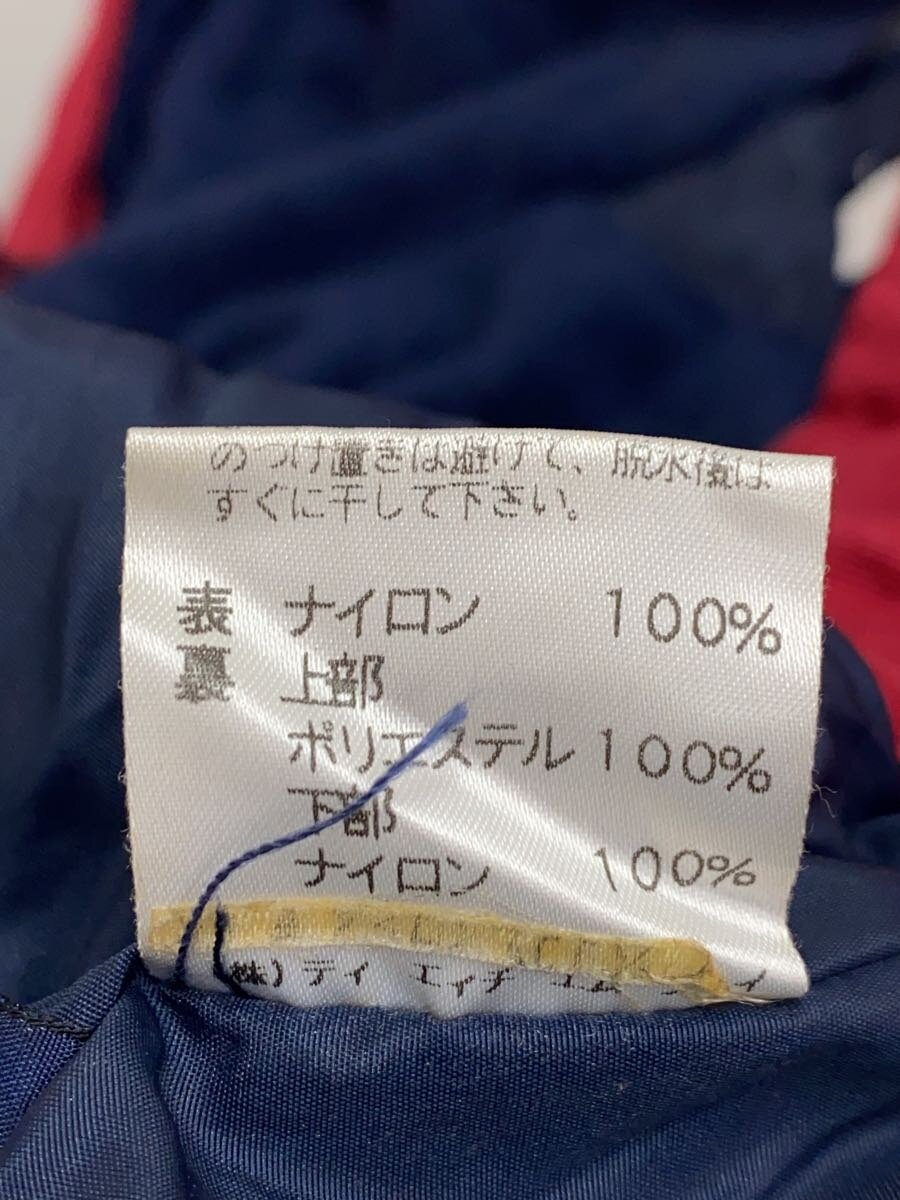 のつけ置きは避けて、脱水後は
すぐに干して下さい。
表 ナイロン 100%
裏 上部
ポリエステル 100%
下部
ナイロン 100%
(株)ティ エイチ